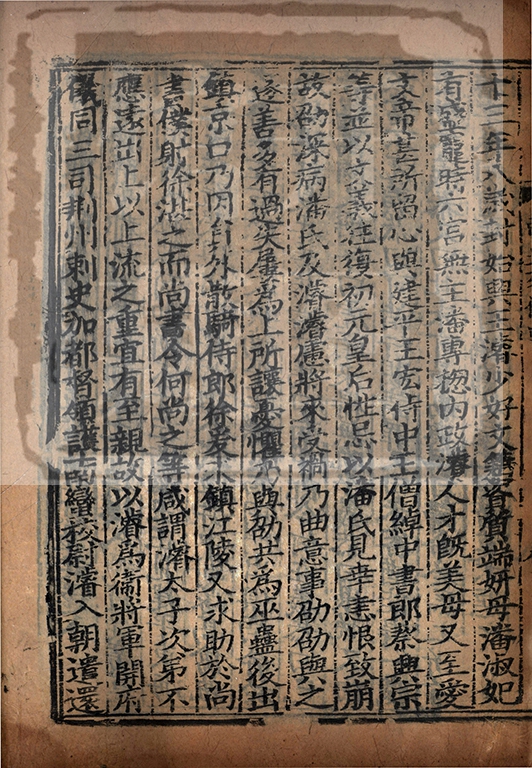 十三年八歲封始興王濬少好文籍資質端妍母潘淑妃
有盛寵時六宮無主潘專揔內政濬人才旣美母又至愛
文帝甚所留心與建平王宏侍中王僧綽中書郎蔡興宗
等並以文義往復初元皇后性忌以潘氏見幸恚恨致崩
故劭深病潘氏及濬濬慮將來受禍乃曲意事劭劭與之
遂善多有過失屢爲上所讓憂懼乃與劭共爲巫蠱後出
鎮京口乃因員外散騎侍郎徐爰求鎮江陵又求助於尚
書僕射徐湛之而尚書令何尚之等咸謂濬太子次第不
應遠出上以上流之重宜有至親故以濬爲衞將軍開府
儀同三司荆州刺史加都督領護南蠻校尉濬入朝遣還